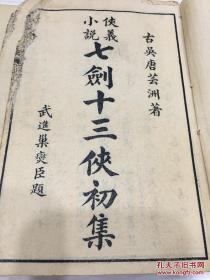 古吳唐芸洲著
俠義
小說
七劍十三俠初集
武進巢奐臣題